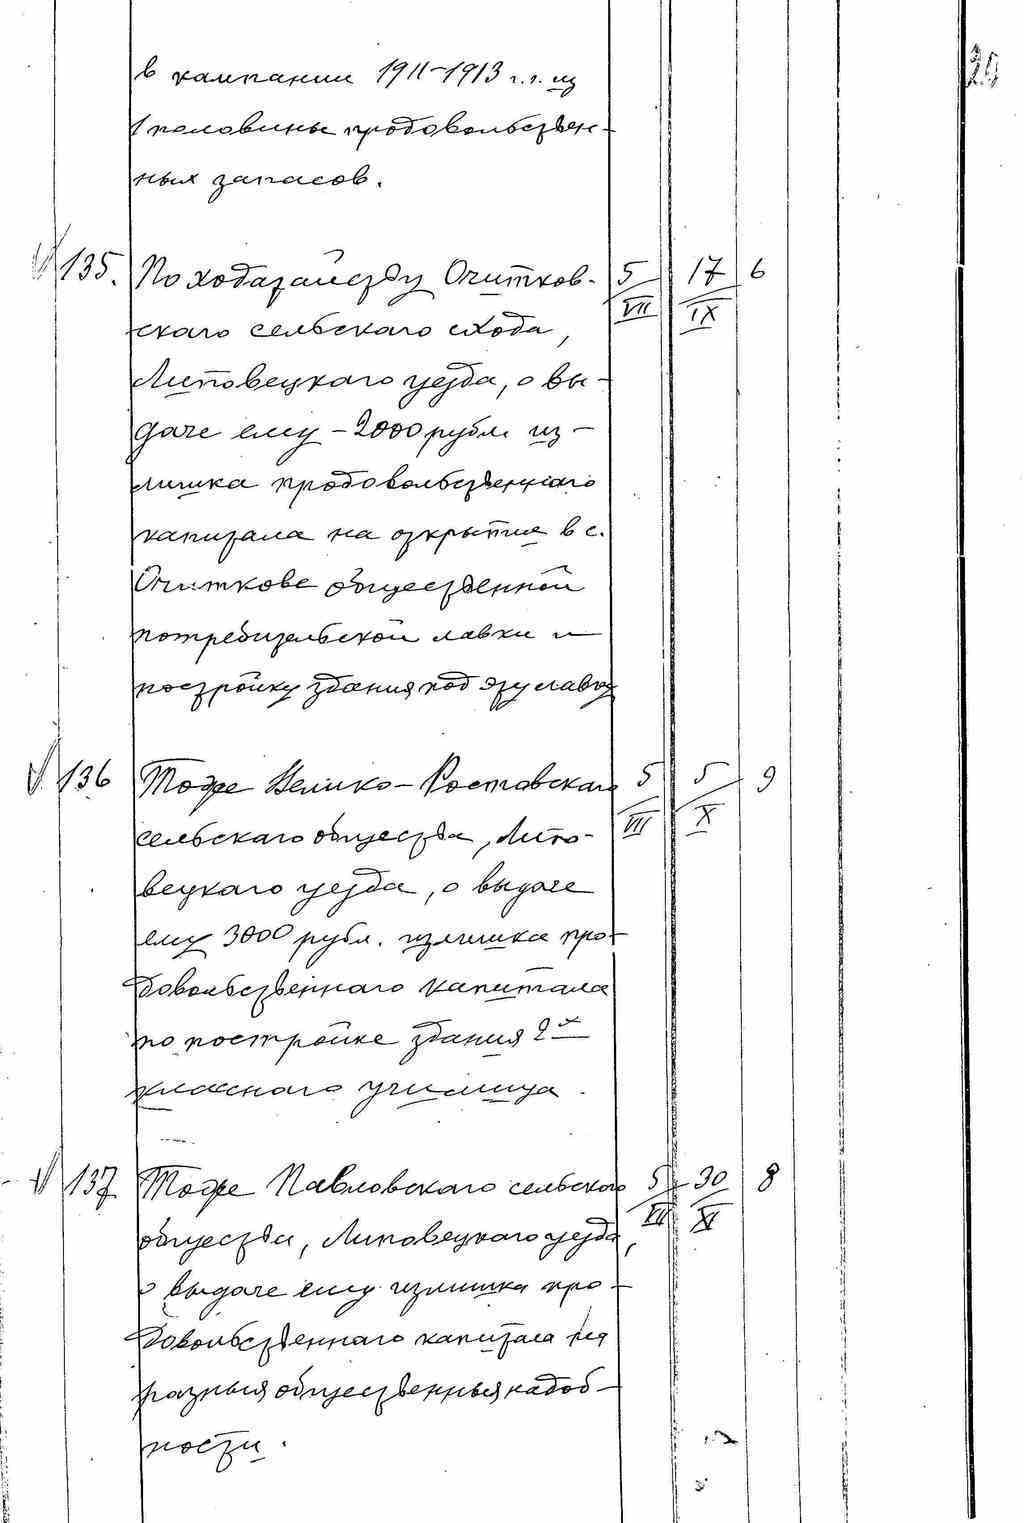 в кампании 1911-1913 г.г. из
1 половины продовольствен-
ных запасов.
135. По ходатайству Очитков- 5/VII 17/IX 6
скаго сельскаго схода,
Липовецкаго уезда, о вы-
даче ему - 2000 рубл. из-
лишка продовольственнаго
капитала на открытие в с.
Очиткове общественной
потребительской лавки и
постройку здания под эту лавку
136 Тоже Велико-Ростовскаго 5/VII 5/X 9
сельскаго общества, Липо-
вецкаго уезда, о выдаче
ему 3000 рубл. излишка про-
довольственнаго капитала
по постройке здания 2х
класснаго училища.
137 Тоже Павловскаго сельскаго 5/VII 30/XI 8
общества, Липовецкаго уезда,
о выдаче ему излишка про-
довольственнаго капитала на
разныя общественныя надоб-
ности.